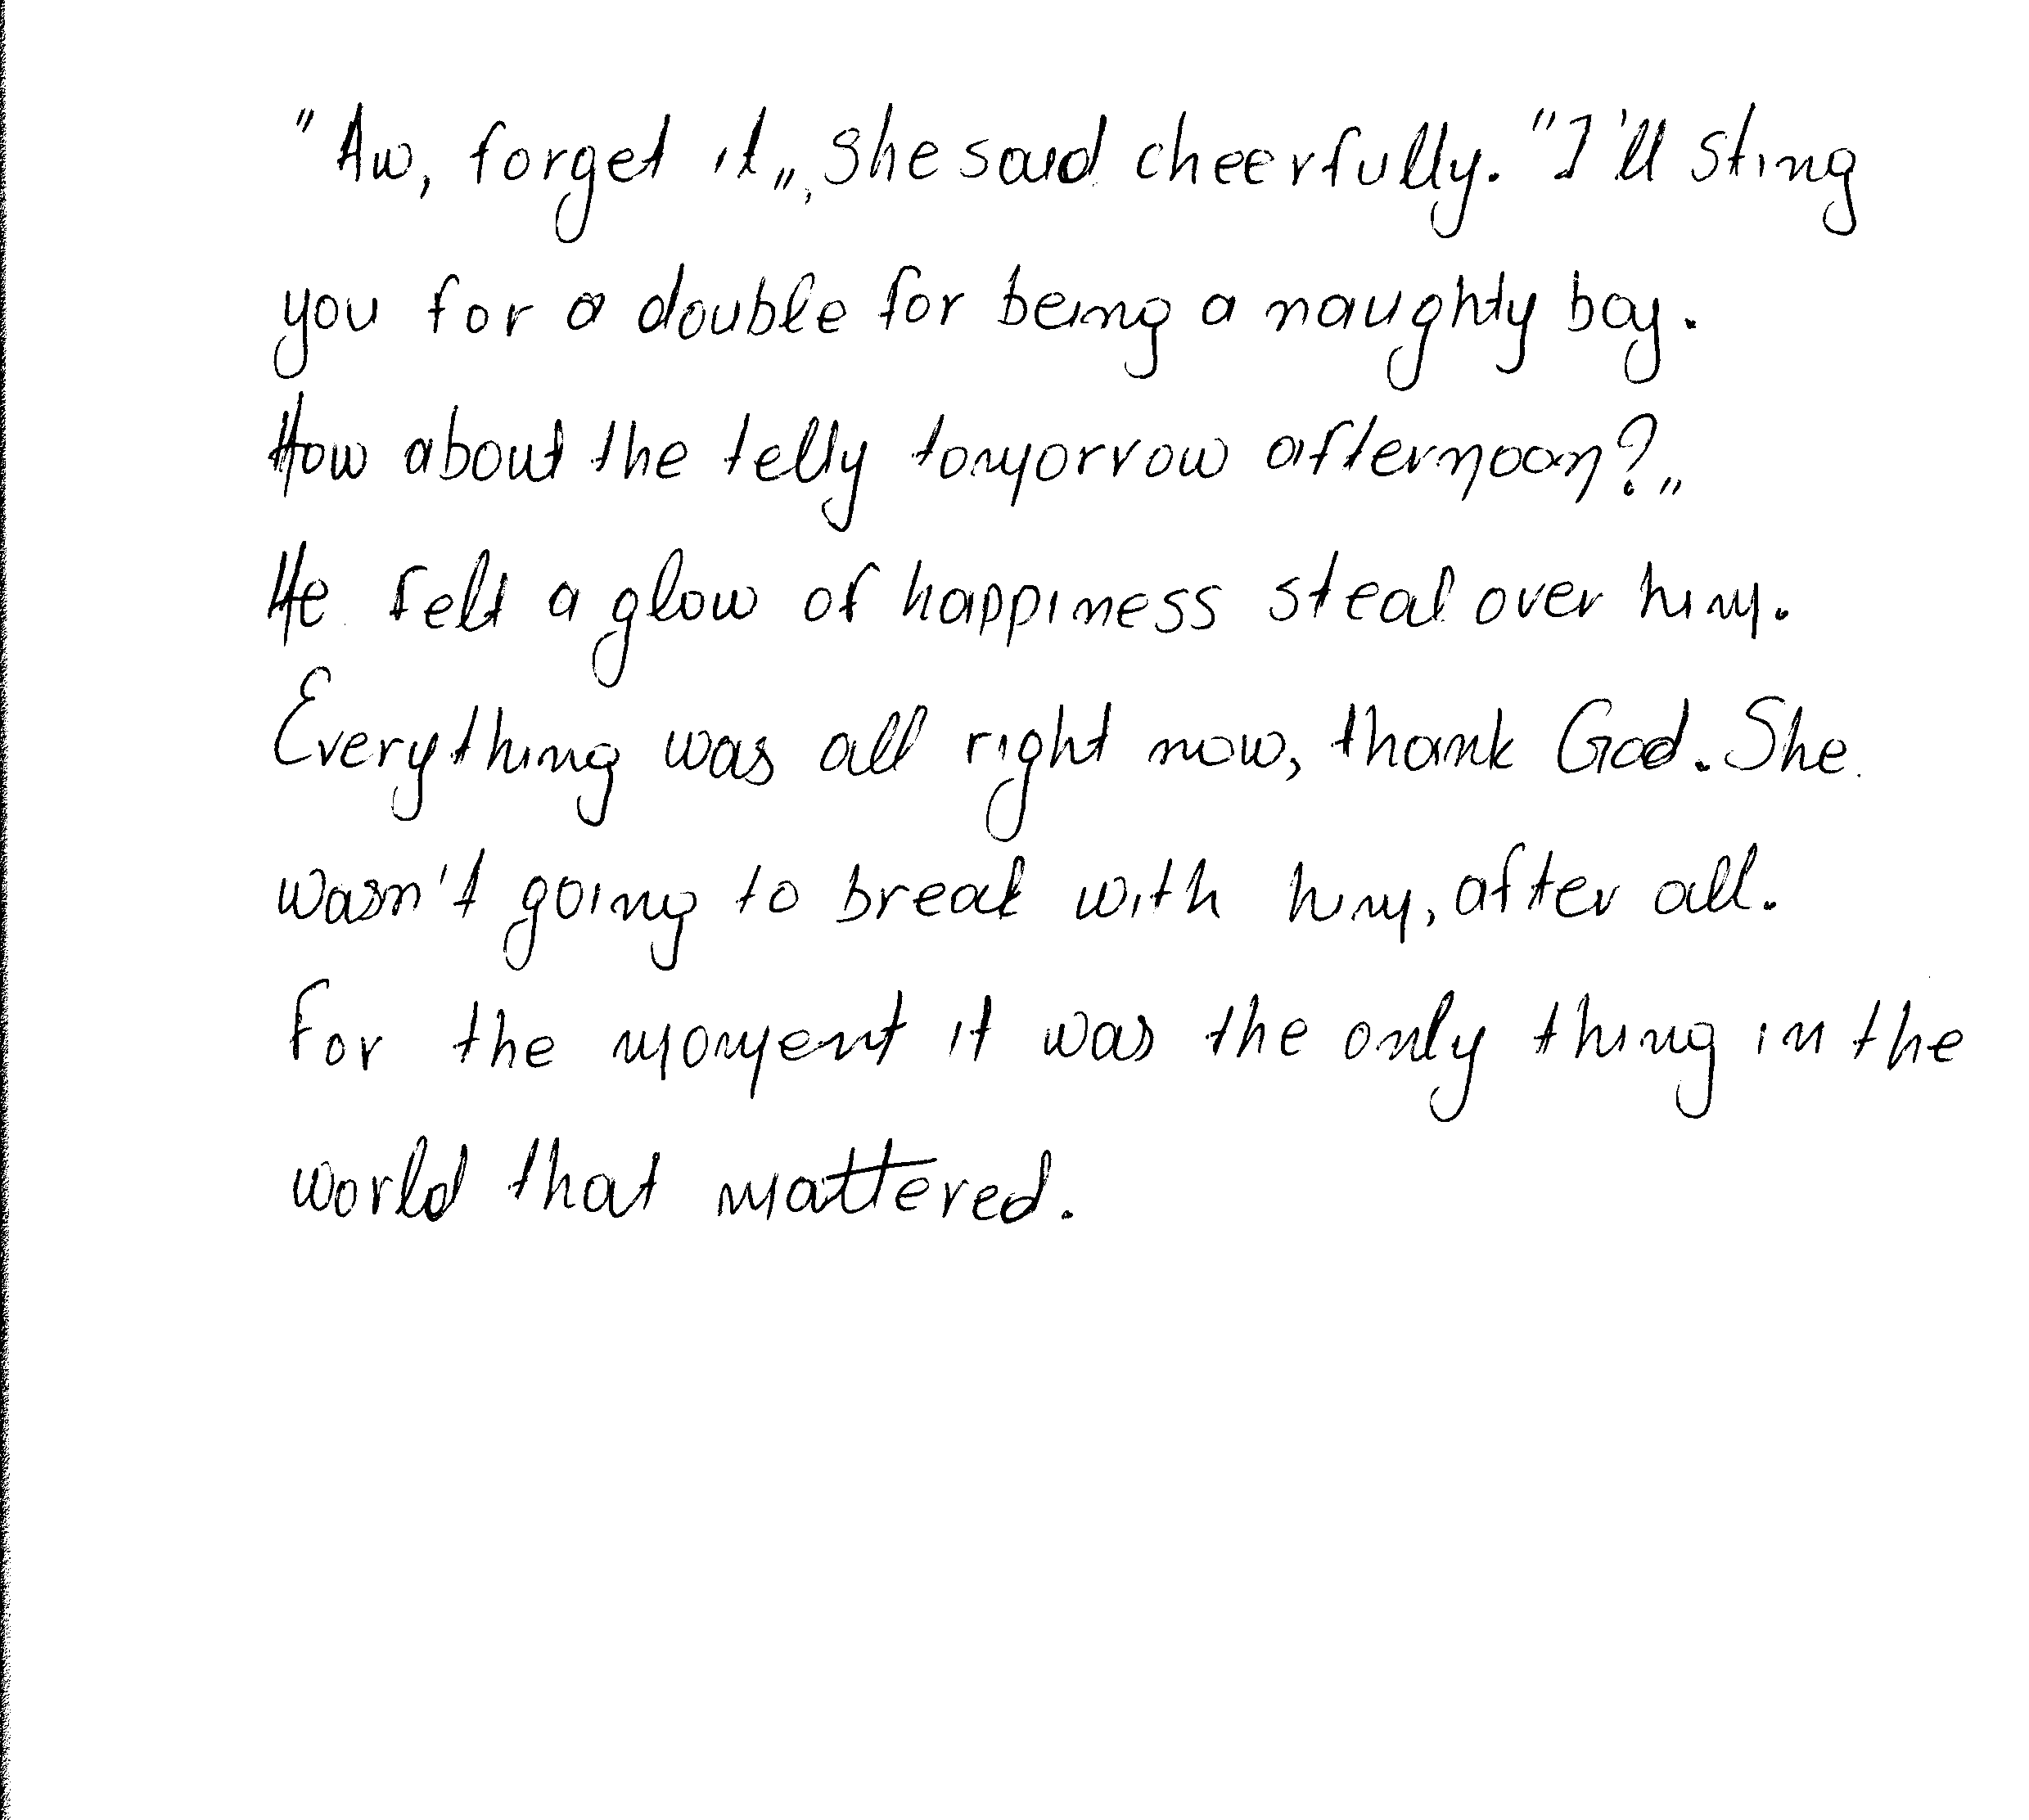 "Aw, forget it„, she said cheerfully. "I'll sting
you for a double for being a naughty boy.
How about the telly tomorrow afternoon?„
He felt a glow of happiness steal over him.
Everything was all right now, thank God. She
wasn't going to break with him, after all.
For the moment it was the only thing in the
world that mattered.